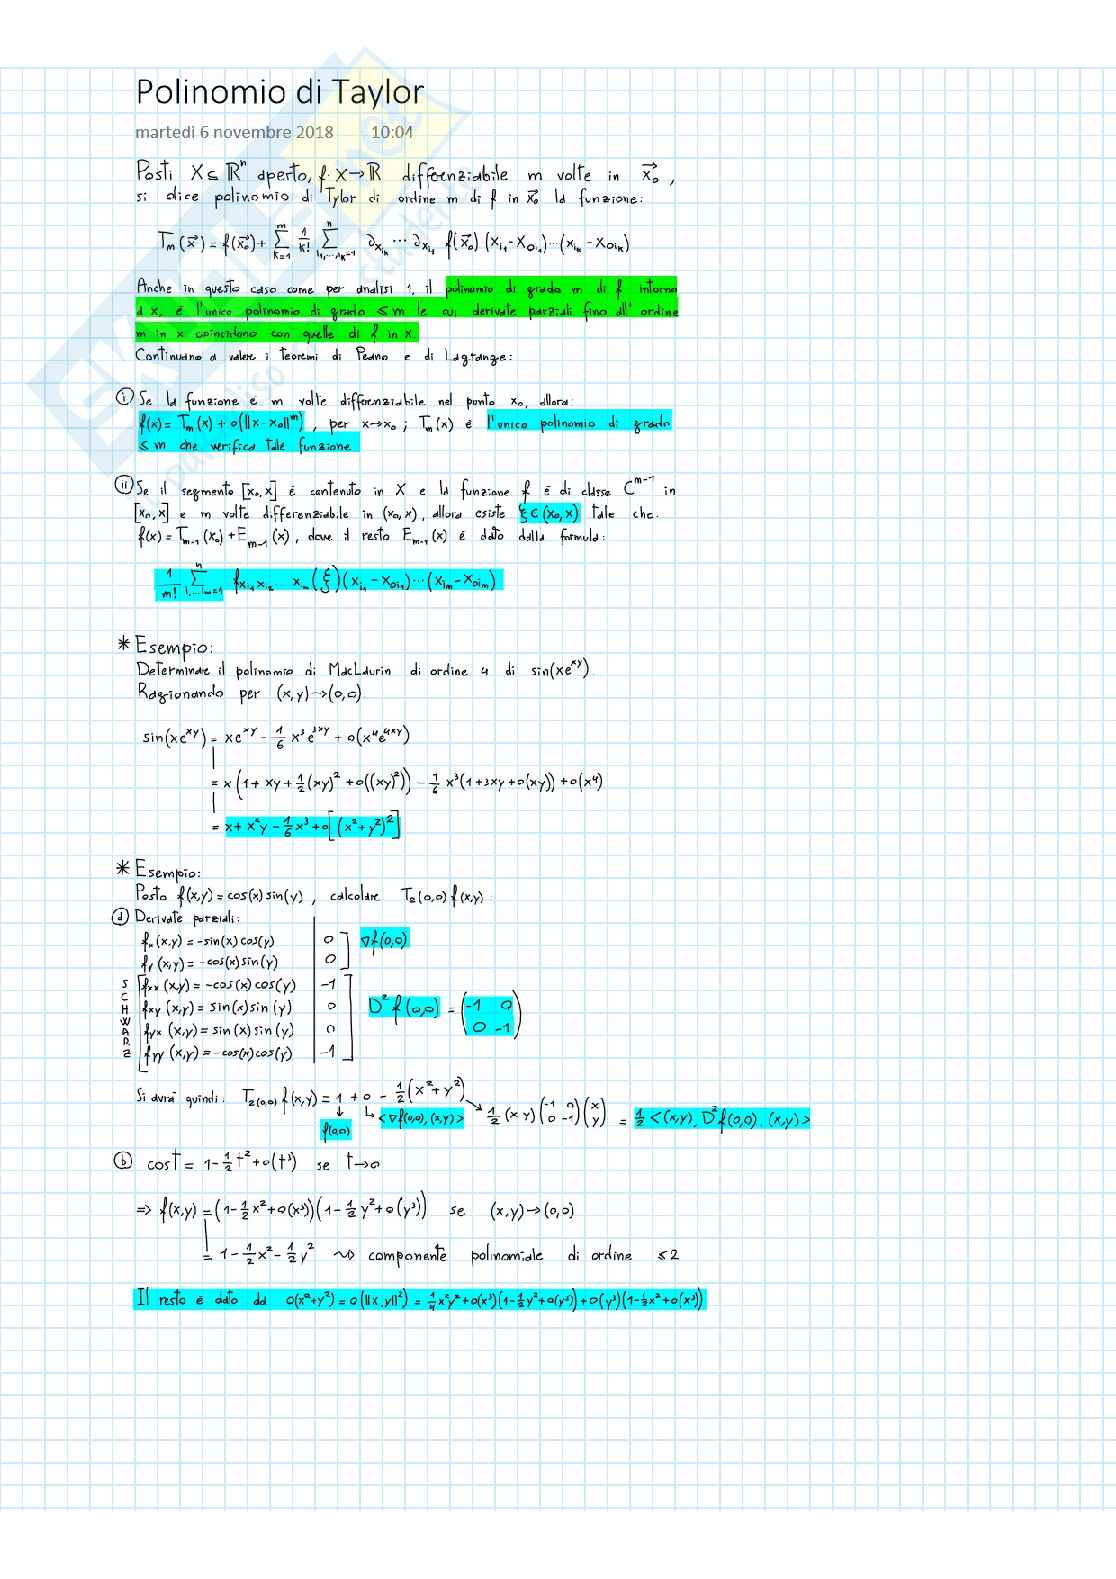 Polinomio di Taylor
martedì 6 novembre 2018 10:04
Posti X ⊆ ℝⁿ aperto, f: X→ℝ differenziabile m volte in x⃗₀,
si dice polinomio di Tylor di ordine m di f in x⃗₀ la funzione:
Tₘ(x⃗) = f(x⃗₀) + Σ_{k=1}^{m} 1/k! Σ_{i₁,...,iₖ=1}^{n} ∂x_{iₖ} ... ∂x_{i₁} f(x⃗₀) (x_{i₁}-x_{0i₁})...(x_{iₖ}-x_{0iₖ})
Anche in questo caso come per analisi 1, il polinomio di grado m di f intorno
a x₀ è l'unico polinomio di grado ≤ m le cui derivate parziali fino all'ordine
m in x coincidono con quelle di f in x.
Continuano a valere i teoremi di Peano e di Lagrange:
(i) Se la funzione è m volte differenziabile nel punto x₀, allora:
f(x) = Tₘ(x) + o(||x-x₀||ᵐ), per x→x₀; Tₘ(x) è l'unico polinomio di grado
≤ m che verifica tale funzione.
(ii) Se il segmento [x₀,x] è contenuto in X e la funzione f è di classe C^{m-1} in
[x₀,x] e m volte differenziabile in (x₀,x), allora esiste ξ∈(x₀,x) tale che:
f(x) = T_{m-1}(x₀) + E_{m-1}(x), dove il resto E_{m-1}(x) è dato dalla formula:
1/m! Σ_{i₁,...,iₘ=1}^{n} f_{x_{i₁}x_{i₂}...x_{iₘ}}(ξ)(x_{i₁}-x_{0i₁})...(x_{iₘ}-x_{0iₘ})
* Esempio:
Determinare il polinomio di MacLaurin di ordine 4 di sin(xe^{xy})
Ragionando per (x,y)→(0,0)
sin(xe^{xy}) = xe^{xy} - 1/6 x³e^{3xy} + o(x⁴e^{4xy})
= x(1+xy+1/2(xy)²+o((xy)²)) - 1/6 x³(1+3xy+o(xy)) + o(x⁴)
= x+x²y-1/6x³+o[(x²+y²)²]
* Esempio:
Posto f(x,y)=cos(x)sin(y), calcolare T₂(0,0)f(x,y):
(a) Derivate parziali:
fₓ(x,y) = -sin(x)cos(y) 0 ∇f(0,0)
f_y(x,y) = -cos(x)sin(y) 0
SCHWARZ
fₓₓ(x,y) = -cos(x)cos(y) -1
f_{xy}(x,y) = sin(x)sin(y) 0 D²f(0,0) = (-1 0
f_{yx}(x,y) = sin(x)sin(y) 0 0 -1)
f_{yy}(x,y) = -cos(x)cos(y) -1
Si avrà quindi: T₂(0,0)f(x,y) = 1 + 0 - 1/2(x²+y²)
f(0,0) <∇f(0,0),(x,y)> 1/2 (x y)(-1 0 0 -1)(x y) = 1/2 <(x,y), D²f(0,0).(x,y)>
(b) cos t = 1-1/2t²+o(t³) se t→0
=> f(x,y) = (1-1/2x²+o(x³))(1-1/2y²+o(y³)) se (x,y)→(0,0)
= 1-1/2x²-1/2y² ⤳ componente polinomiale di ordine ≤2
Il resto è dato da o(x²+y²)=o(||x,y||²) = 1/4x²y²+o(x³)(1-1/2y²+o(y³))+o(y³)(1-1/2x²+o(x³))